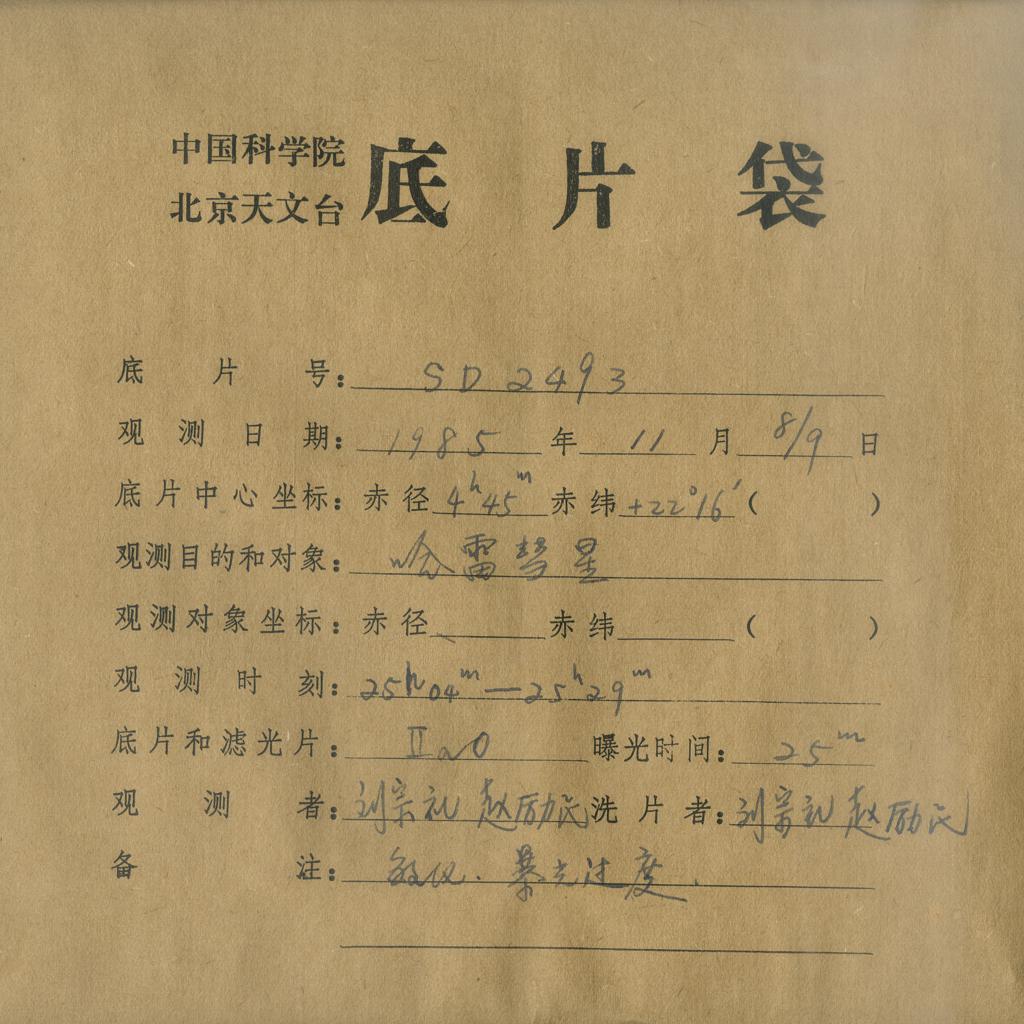 中国科学院
北京天文台
底片袋
底片号：SD2493
观测日期：1985年11月8/9日
底片中心坐标：赤径4h45m赤纬+22°16′（ ）
观测目的和对象：哈雷彗星
观测对象坐标：赤径 赤纬 （ ）
观测时刻：25h04m—25h29m
底片和滤光片：IIaO 曝光时间：25m
观测者：刘宗礼 赵励民 洗片者：刘宗礼 赵励民
备注：暴光过度.